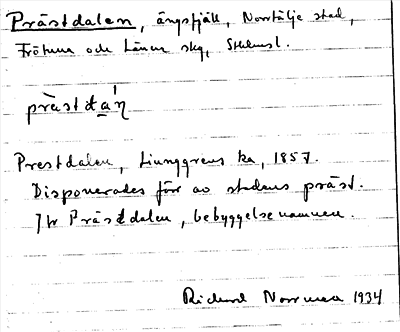 Prästdalen, ängsfjäll, Norrtälje stad,
Frötuna och Länna skg, Sthlmsl.
prästdan
Prestdalen, Ljunggrens ka, 1857.
Disponerades förr av stadens präst.
Jfr Prästdalen, bebyggelsenamnen.
Rickard Norrman 1934